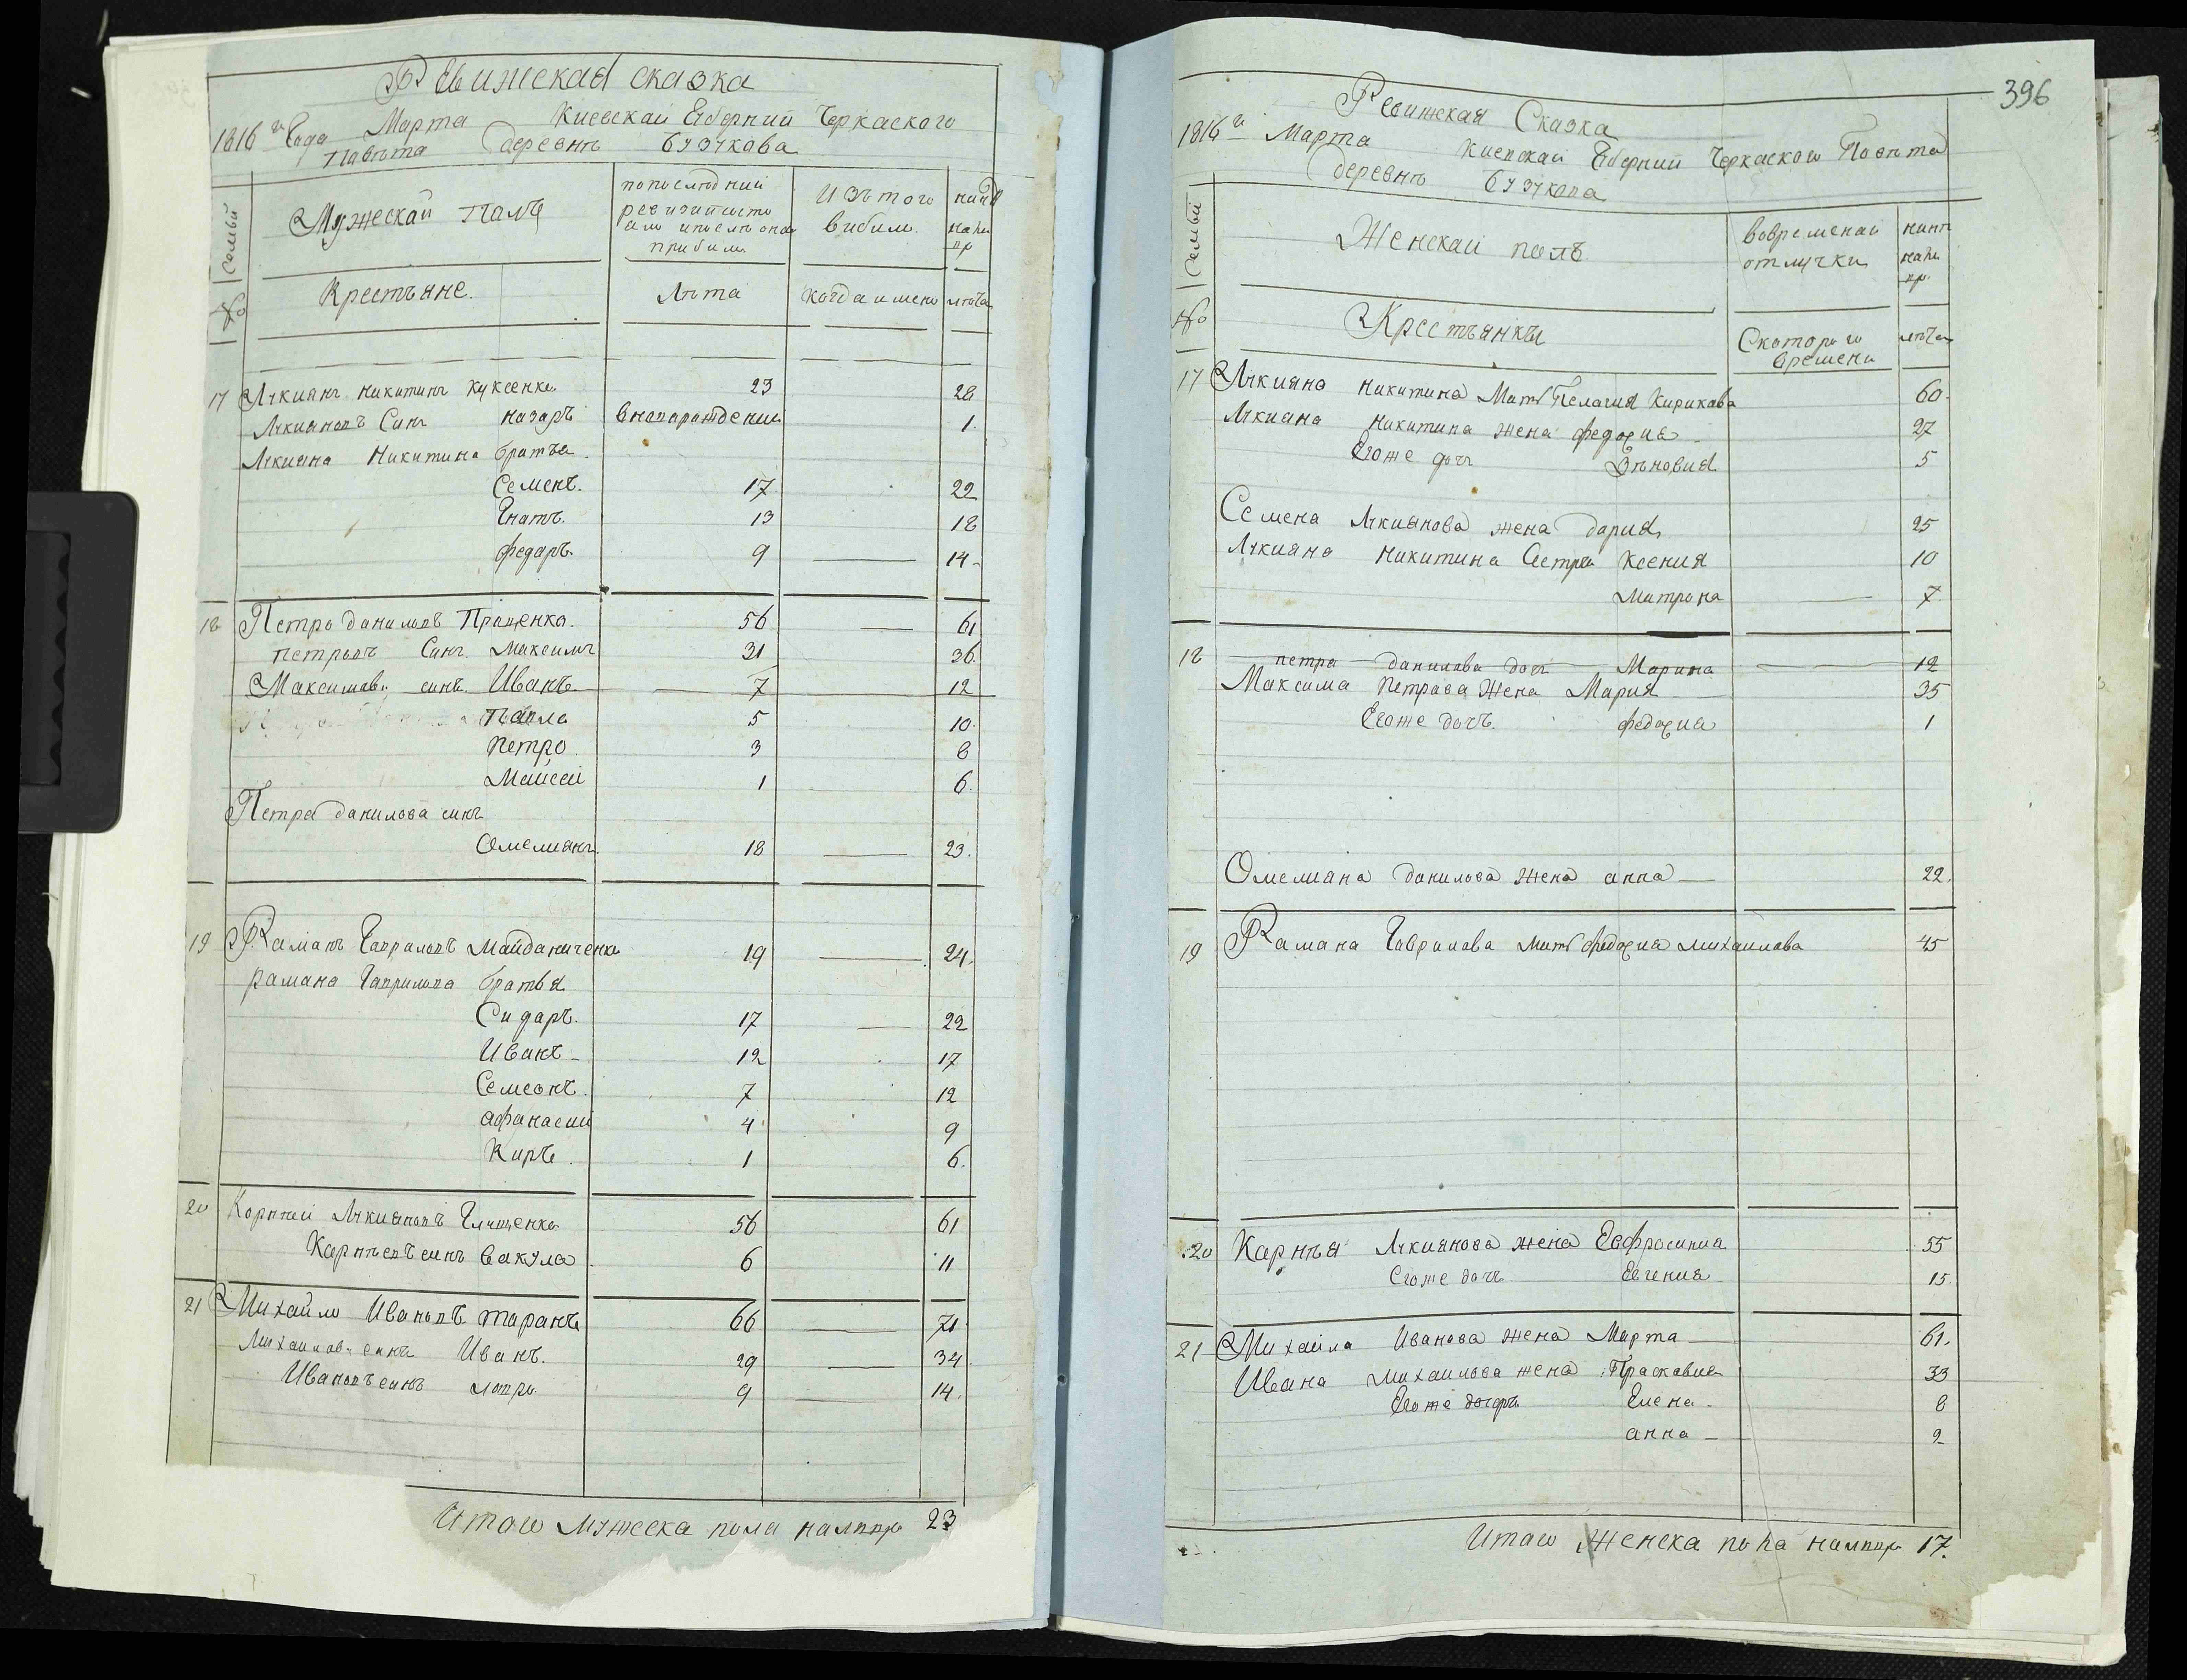 Ревижская сказка
1816 го Года Марта Киевскай Губерний Черкаского
Павѣта Деревнѣ Бузукава
№ семьй
Мужескай Палъ
попослѣдний
ревизий
прибило
Изътого
вибило
Крестъяне.
Лѣта
когда имено
лѣта
17 Лукиянъ Никитинъ Куксенко 23 28
Лукияновъ Синъ назаръ вновораждений 1.
Лукияна Никитина братъя.
Семенъ. 17 22
Гнатъ. 13 18
федаръ. 9 14
18 Петро данилавъ Пращенко. 56 61
петровъ Синъ Максимъ 31 36.
Максимавъ синъ Иванъ 7 12
Павло 5 10.
Петро 3 8
Мойсей 1 6.
Петра данилова синъ
Омелиянъ. 18 23.
19 Раманъ Гавриловъ Майданиченко 19 24.
рамана Гаврилова братья
Сидаръ. 17 22
Иванъ 12 17
Семеонъ. 7 12
афанасий 4 9
Киръ. 1 6.
20 Корнѣй Лукияновъ Глущенко 56 61
Карнѣевъ синъ Вакула 6 11
21 Михайло Ивановъ таранъ 66 71.
Михаиловъ синъ Иванъ. 29 34.
Ивановъ синъ 9 14.
Итаго мужеска пола 23
396
Ревижская Сказка
1816 го Марта Киевскай Губерний Черкаского Повѣта
Деревнѣ Бузукова
№ семьй
Женскай полъ
вовременай
отлучки
Крестъянки
Скоторого
времени
лѣта
17 Лукияна Никитина Мать Пелагия Кирикова 60.
Лукияна Никитина жена федосия 27
Егоже дочъ Зѣновия 5
Семена Лукиянова жена дария 25
Лукияна Никитина Сестра Ксения 10
Митрона 7.
18 петра данилова дочъ Марина 12
Максима Петрова Жена Мария 35
Егоже дочъ. федосия 1
Омелияна данилова жена анна 22.
19 Рамана Гаврилова мать федосия михаилова 45
20 Карнѣя Лукиянова жена Евфросиния 55
Егоже дочъ Евгения 15.
21 Михайла Иванова жена Марта 61.
Ивана михаилова жена Прасковия 33
Егоже дочеръ Елена 8
анна 2
Итаго Женска пола 17.